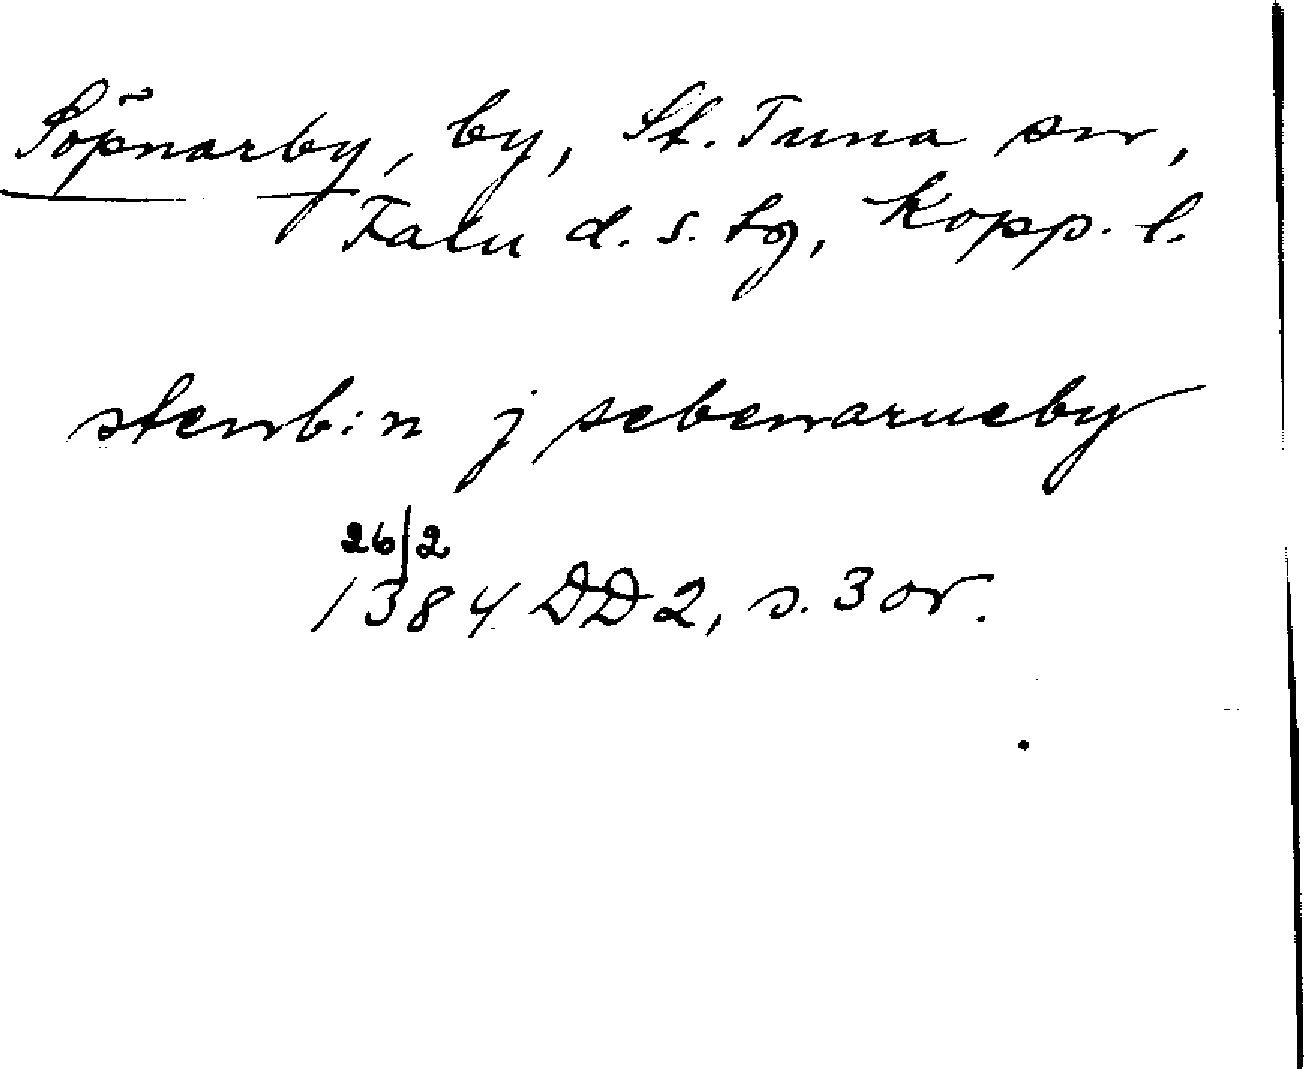 Söpnarby, by, St. Tuna sn,
Falu d. s. tg, Kopp. l.
stenb:n j sebenarueby
26/2
1384 DD2, s. 3 or.